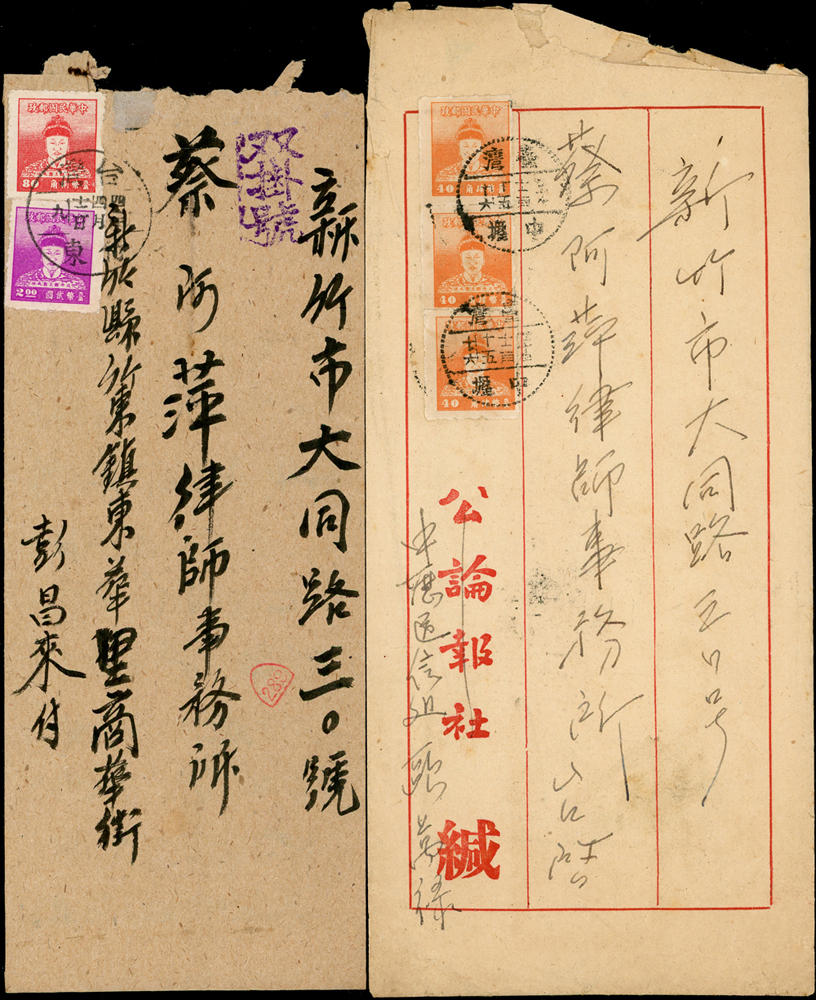 新竹市大同路三〇號
蔡阿萍律師事務所
新竹縣竹東鎮東華里商華街
彭昌來付
双掛號
中華民國郵政
80
中華民國郵政
2.00
臺幣貳圓
東
282
新竹市大同路三〇号
蔡阿萍律師事務所台啓
公論報社 緘
中壢
40
40
40
臺灣
中壢
臺灣
中壢